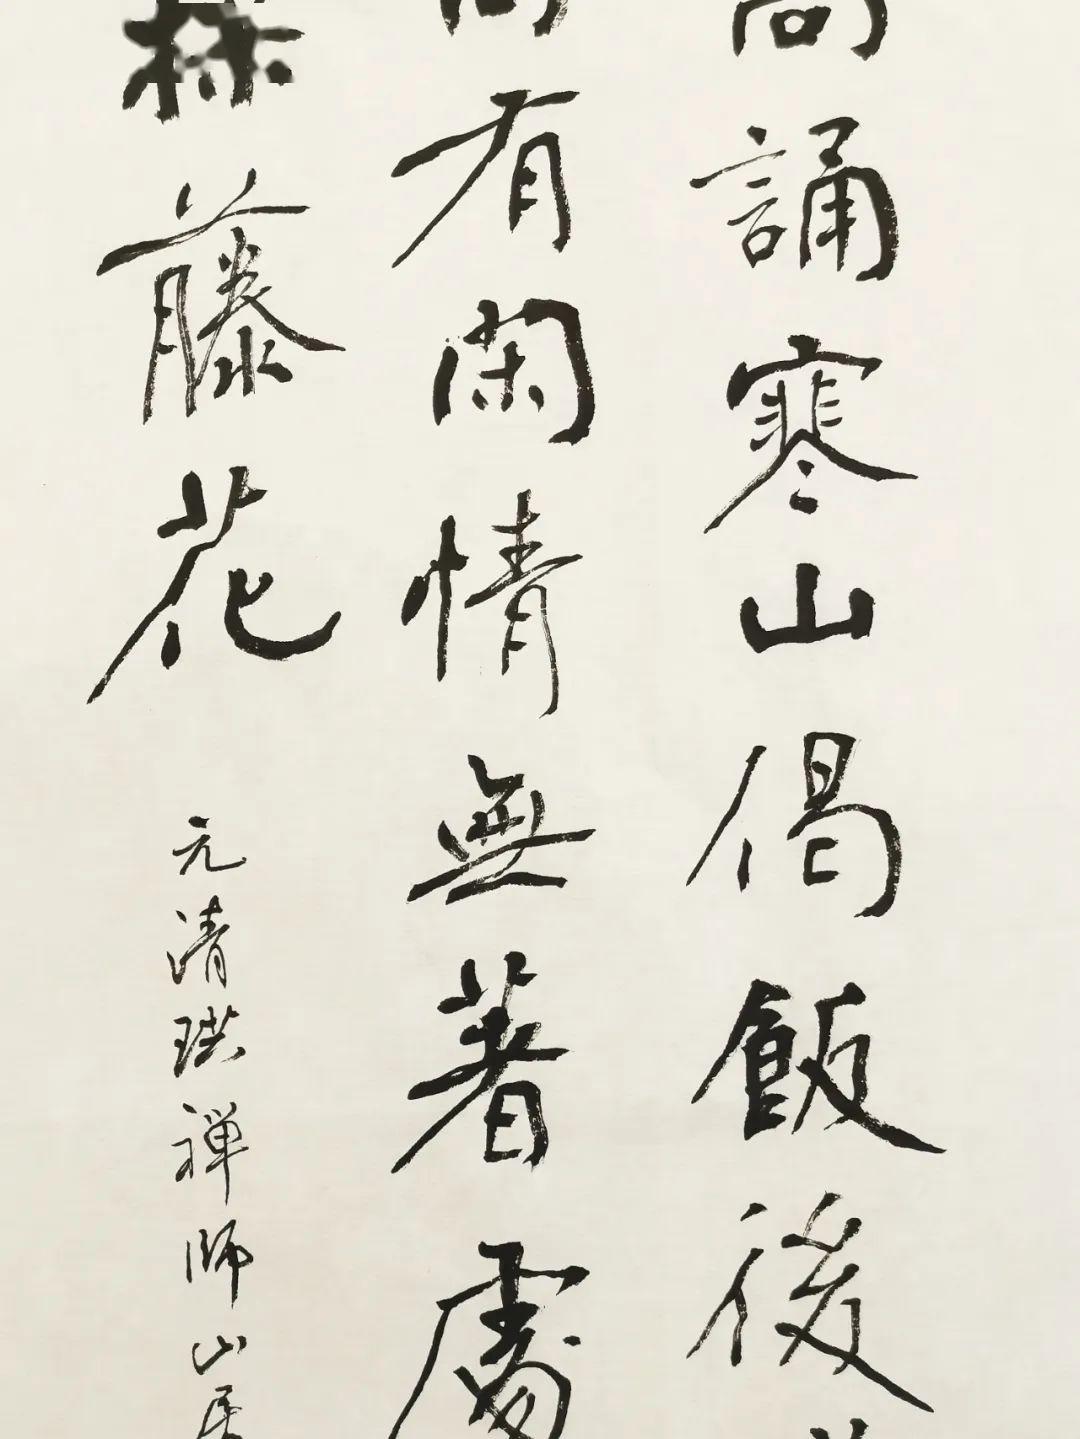 高誦寒山偈飯後
有閑情無著處
藤花
元清珙禅师山居